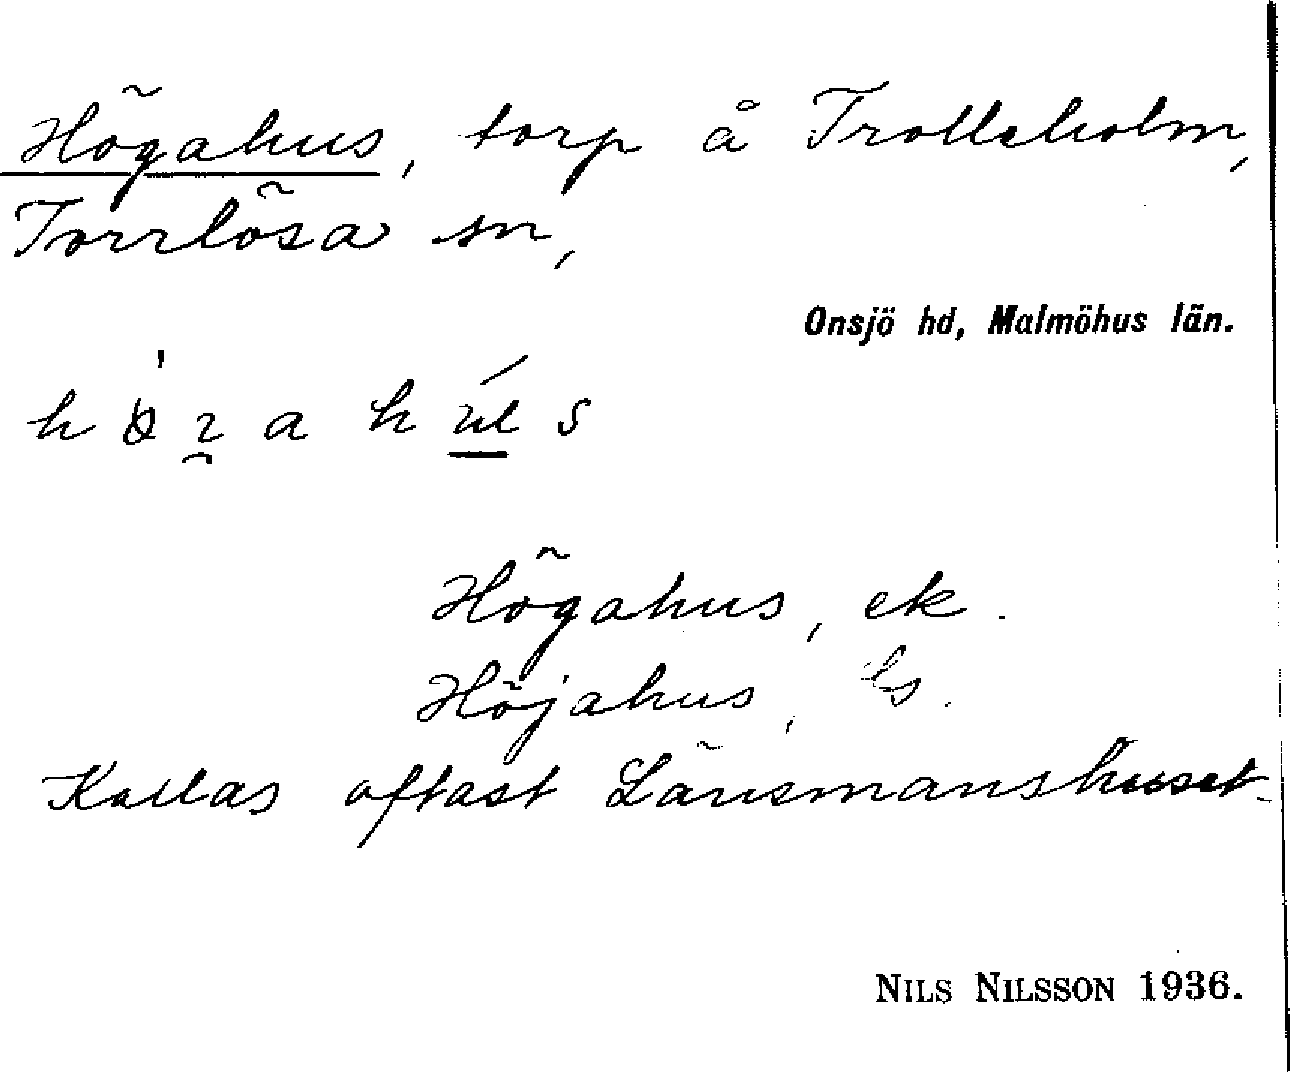 Högahus, torp å Trolleholm,
Torrlösa sn,
Onsjö hd, Malmöhus län.
Högahus, ek.
Höjahus, Es.
Kallas oftast Länsmanshuset.
NILS NILSSON 1936.